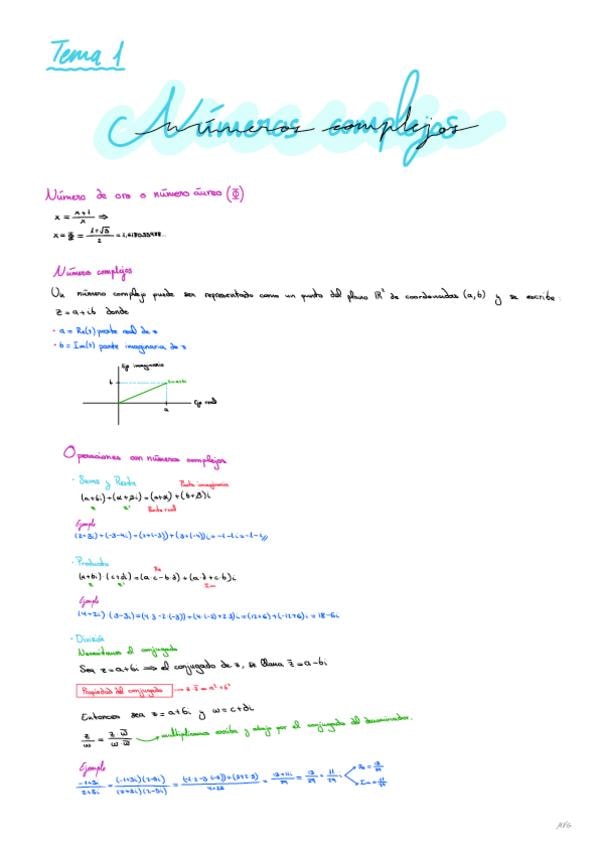 Tema 1
Números complejos
Número de oro o número áureo (Φ)
x = x+1/x ⇒
x = Φ = 1+√5/2 = 1,618033988..
Números complejos
Un número complejo puede ser representado como un punto del plano ℝ² de coordenadas (a,b) y se escribe:
z = a+ib donde
· a = Re(z) parte real de z
· b = Im(z) parte imaginaria de z
Eje imaginario
b
z=a+bi
Eje real
a
Operaciones con números complejos
· Suma y Resta
Parte imaginaria
(a+bi)+(α+βi)=(a+α)+(b+β)i
z z' Parte real
Ejemplo
(2+3i)+(-3-4i)=(2+(-3))+(3+(-4))i=-1-1i=-1-i
· Producto
Re
(a+bi)·(c+di)=(a·c-b·d)+(a·d+c·b)i
z z' Im
Ejemplo
· División
Necesitamos el conjugado
Sea z=a+bi ⟹ el conjugado de z, se llama z̄=a-bi
Propiedad del conjugado → z·z̄=a²+b²
Entonces sea z=a+bi y ω=c+di
z/ω = z·ω̄/ω·ω̄ → multiplicamos arriba y abajo por el conjugado del denominador.
Ejemplo
MFG